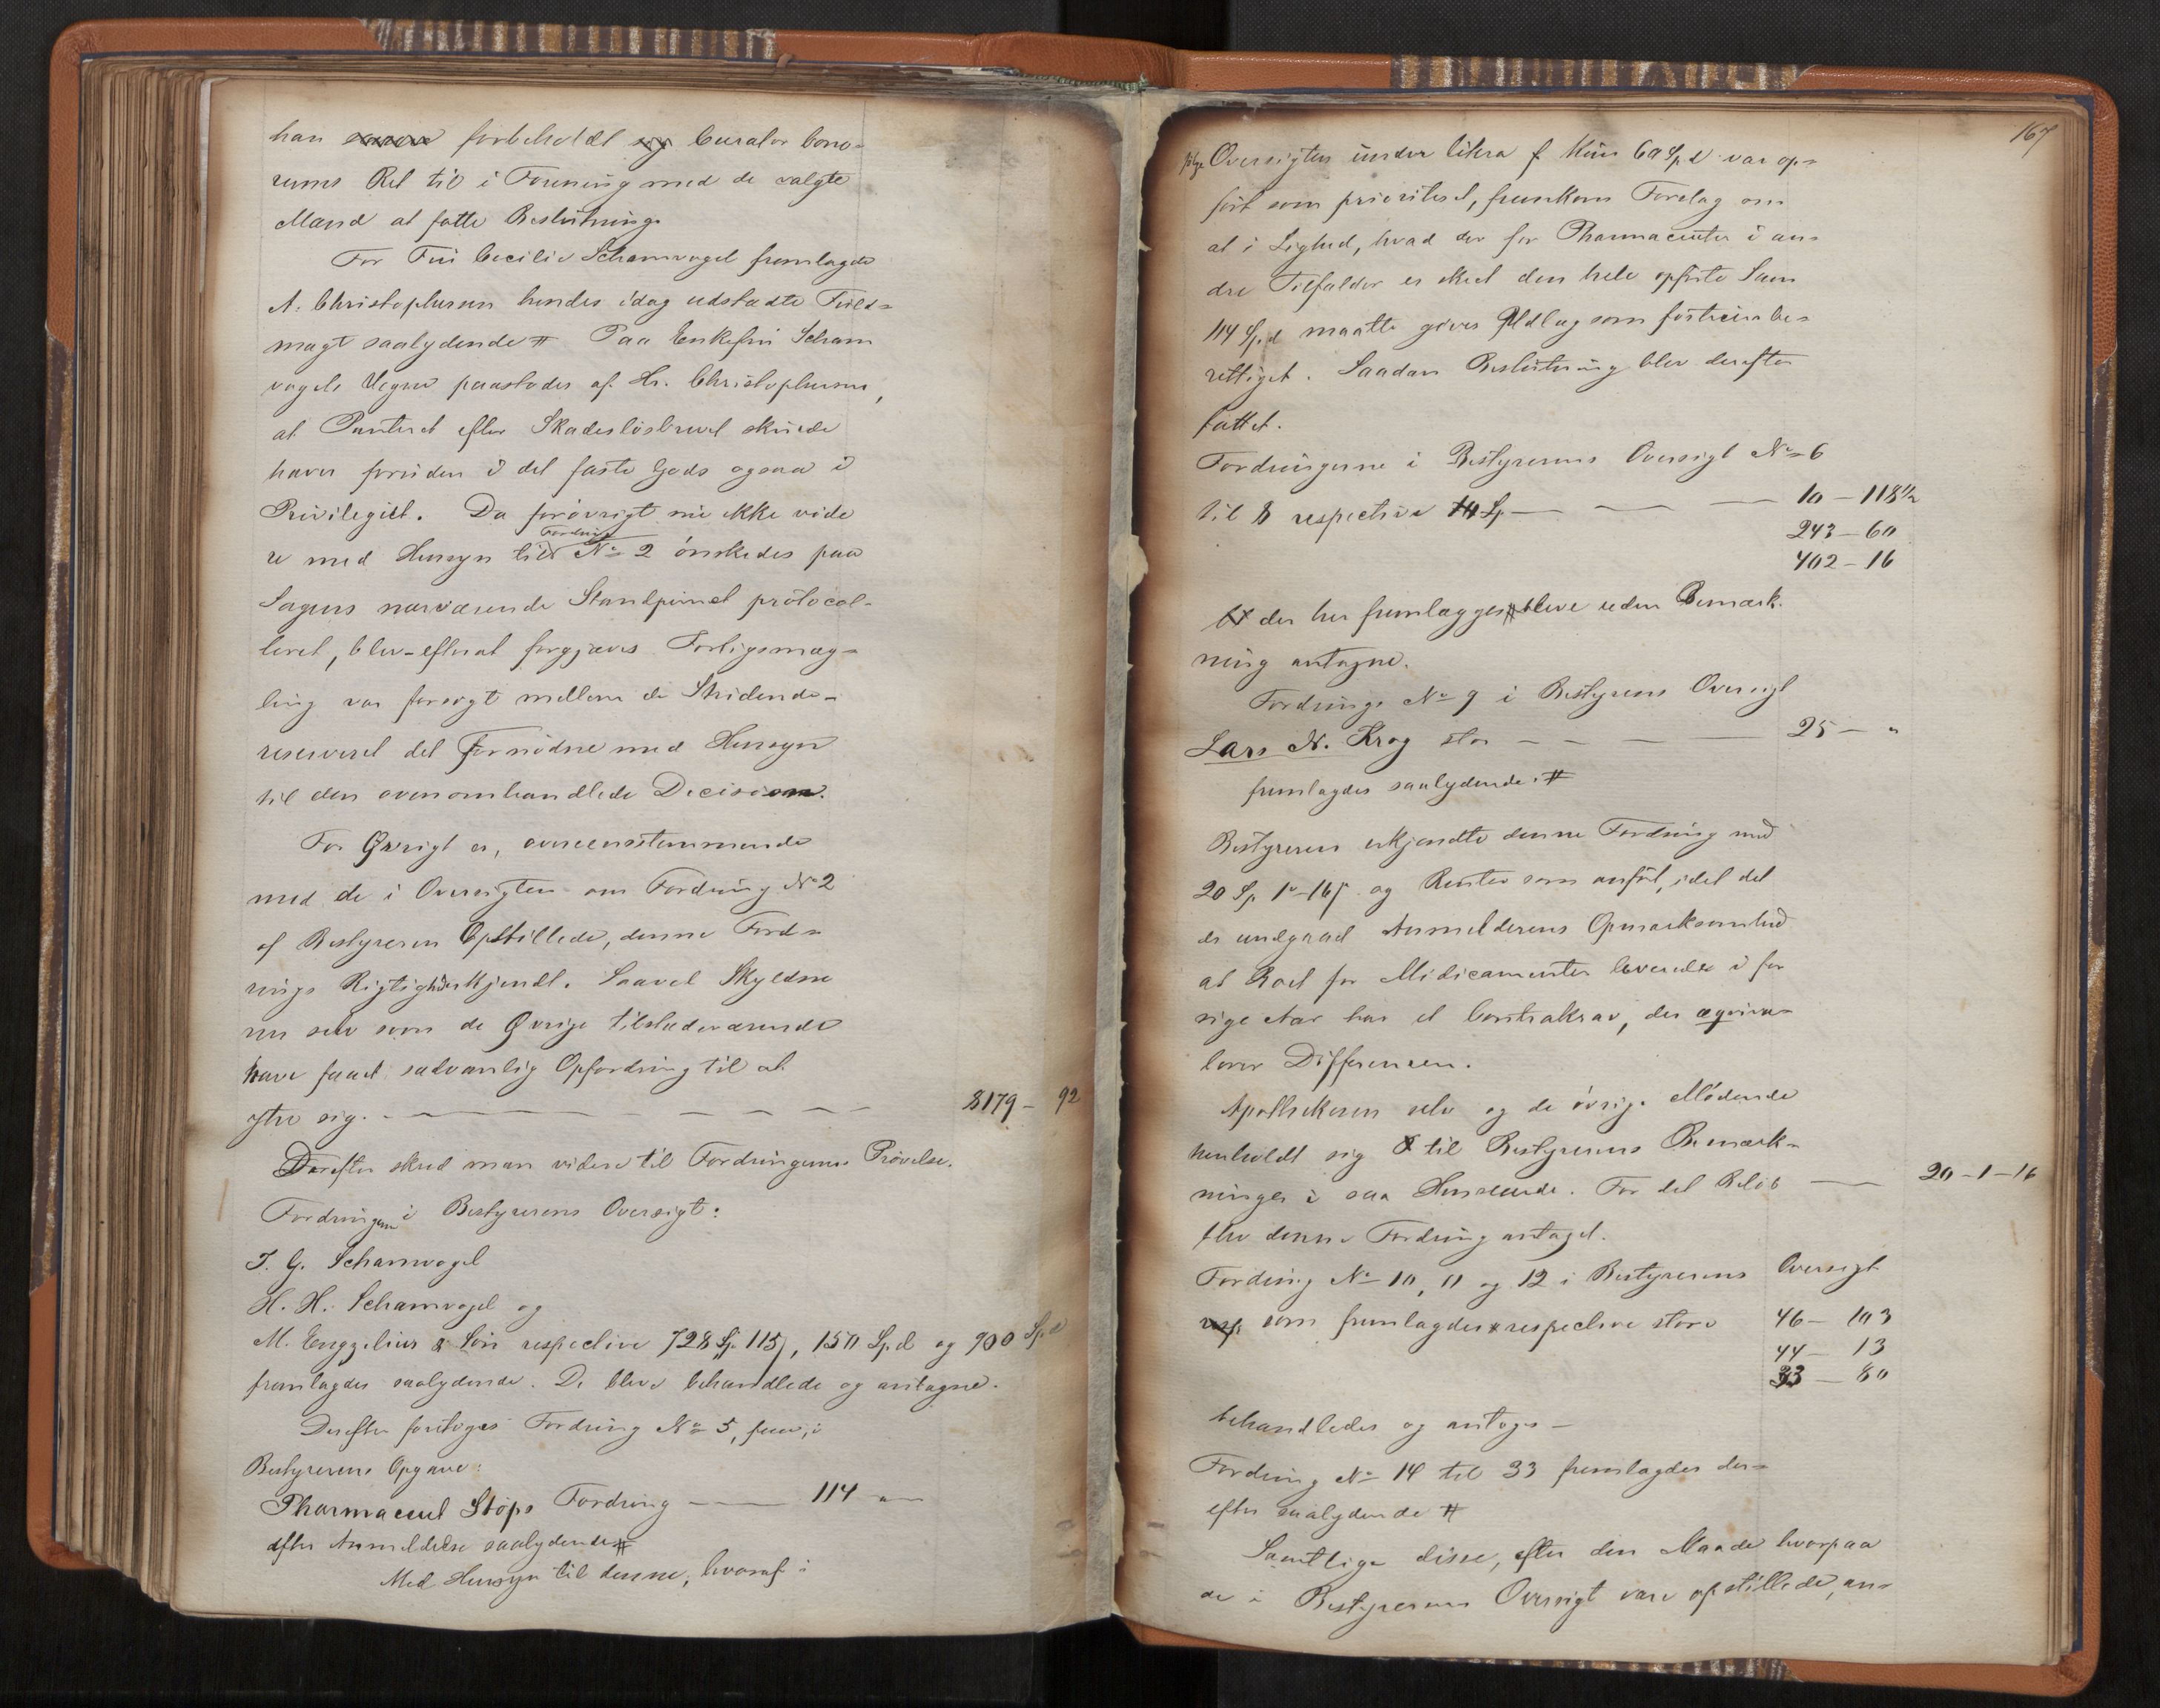 han forbeholdt Curator bono-
rums Ret til i Forening med de valgte
Mænd at fatte Beslutning.
For Fru Cecilie Schamvogel fremlagde
A. Christophersen hendes idag udstædte Fuld-
magt saalydende # Paa Enkefru Scham
vogels Vegne paastodes af Hr. Christophersen,
at Panteret efter Skadesløsbrevet skulde
haves foruden i det faste Gods ogsaa i
Privilegiet. Da forøvrigt nu ikke vide
re med Hensyn til Fordring No 2 ønskedes paa
Sagens nærværende Standpunct protocol-
leret, blev efterat forgjæves Forligsmæg-
ling var forsøgt mellem de Stridende
reserveret det Fornødne med Hensyn
til den ovenomhandlede Decision.
For Øvrigt er, overeensstemmende
med de i Oversigten om Fordring No 2
af Bestyreren Opstillede, denne Ford-
rings Rigtighed erkjendt. Saavel Skyldne
ren selv som de Øvrige tilstedeværende
have faaet sædvanlig Opfordring til at
yttre sig. 8179 - 92
Derefter skred man videre til Fordringernes Prøvelse.
Fordringerne i Bestyrerens Oversigt:
J. G. Schamvogel
H. H. Schamvogel og
M. Enggelius & Søn respective 728 Sp. 115 , 150 Sp.d og 900 Sp.d
fremlagdes saalydende. De bleve behandlede og antagne.
Derefter foretoges Fordring No 5, i
Bestyrerens Opgave:
Pharmaceut Støps Fordring 114 -
efter Anmeldelse saalydende #
Med Hensyn til denne, hvoraf i
167
følge Oversigten under litra f kun 60 Sp.d var op-
ført som prioriteret, fremkom Forslag om
at i Lighed, hvad der for Pharmaceuter i an-
dre Tilfælder er skeet den hele opførte Sum
114 Sp.d maatte gives Udlæg som fortrinsbe-
rettiget. Saadan Beslutning blev derefter
fattet.
Fordringerne i Bestyrerens Oversigt No 6
til 8 respective 10 - 118 1/2
243 - 60
402 - 16
der her fremlægges # bleve uden Bemærk-
ning antagne.
Fordring No 9 i Bestyrerens Oversigt
Lars N. Krog stor 25 - "
fremlagdes saalydende: #
Bestyreren erkjendte denne Fordring med
20 Sp. 1 - 16 og Renter som anført, idet det
er undgaaet Anmelderens Opmærksomhed
at Boet for Medicamenter leverede i for
rige Aar har et Contrakrav, der æqviva-
lerer Differensen.
Apothekeren selv og de øvrige Mødende
henholdt sig til Bestyrerens Bemærk-
ninger i saa Henseende. For det Beløb 20 - 1 - 16
blev denne Fordring antaget.
Fordring No 10, 11 og 12 i Bestyrerens Oversigt
som fremlagdes # respective store 46 - 103
44 - 13
33 - 80
behandledes og antoges -
Fordring No 14 til 33 fremlagdes der-
efter saalydende #
Samtlige disse, efter den Maade hvorpaa
de i Bestyrerens Oversigt vare opstillede, an-